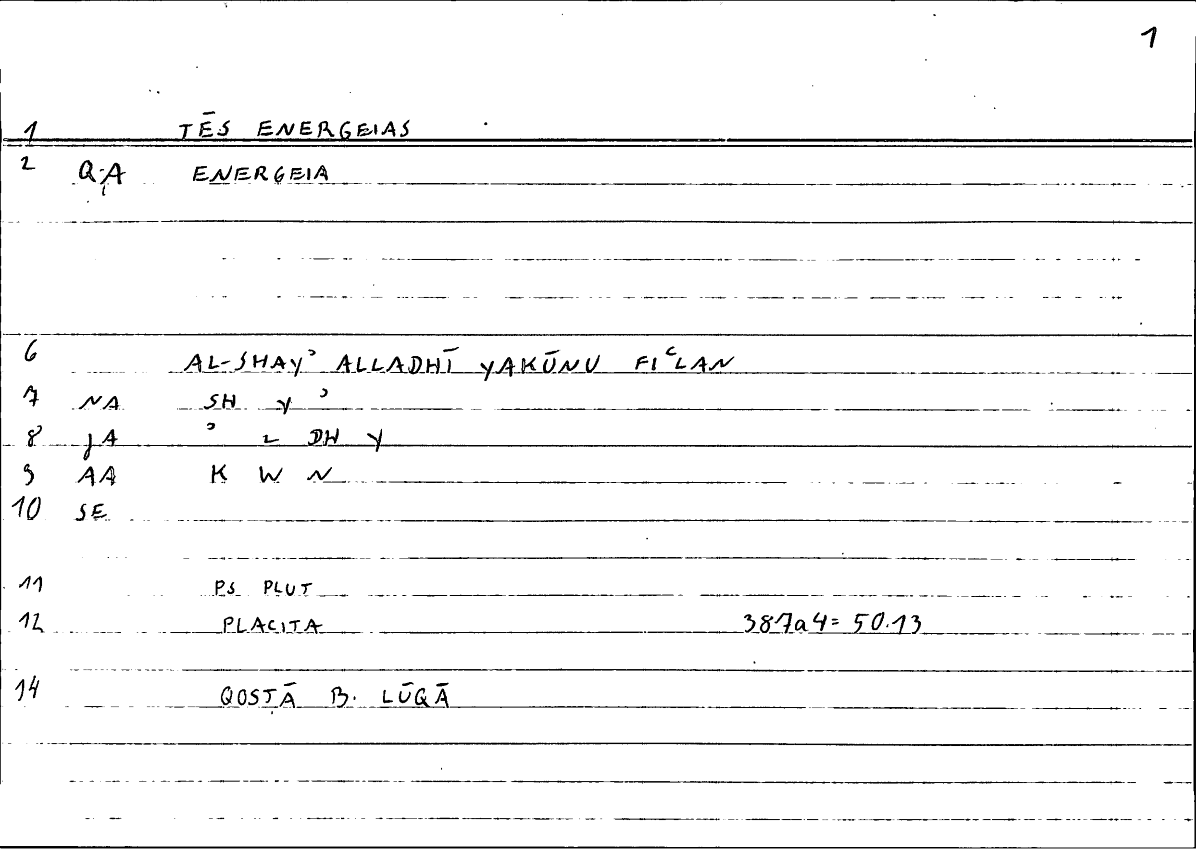 1
1 TĒS ENERGEIAS
2 Q.A ENERGEIA
6 AL-SHAYʾ ALLADHĪ YAKŪNU FIʿLAN
7 NA SH Y ʾ
8 JA ʾ L DH Y
9 AA K W N
10 SE
11 PS PLUT
12 PLACITA 387a4= 50.13
14 QOSṬĀ B. LŪQĀ